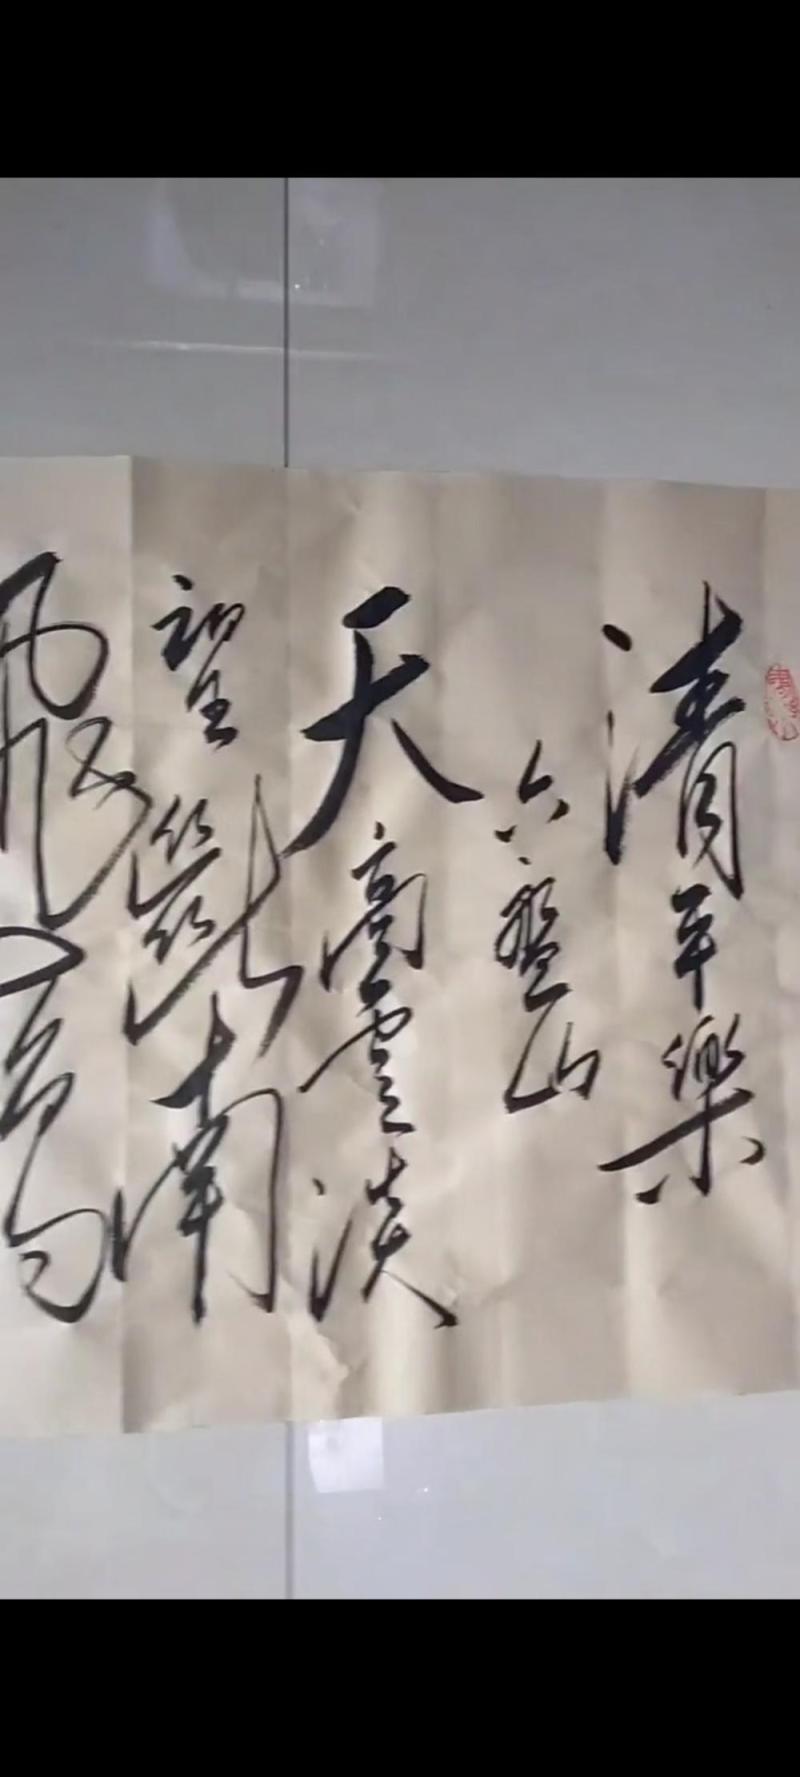 清平樂
六盤山
天高雲淡
望斷南
飛